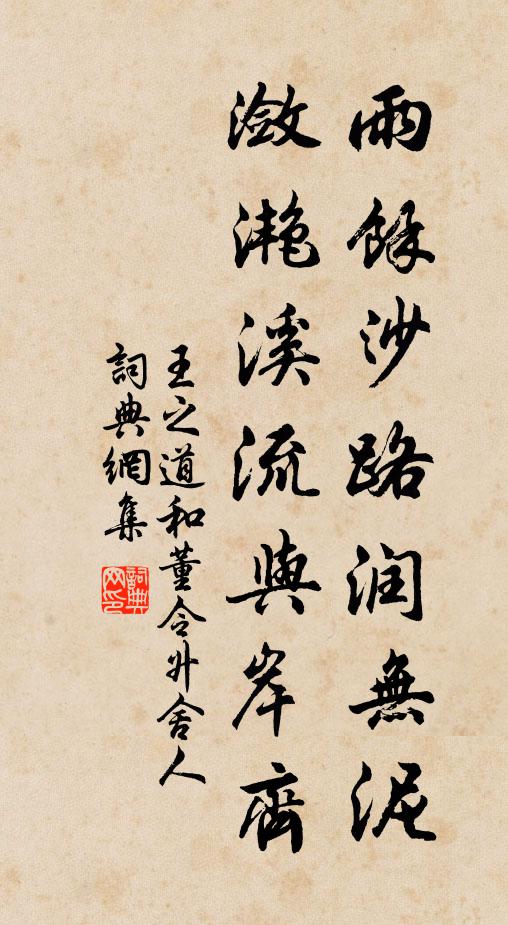 雨餘沙路潤無泥
瀲灧溪流與岸齊
王之道和董令升舍人
詞典網集
詞典网印